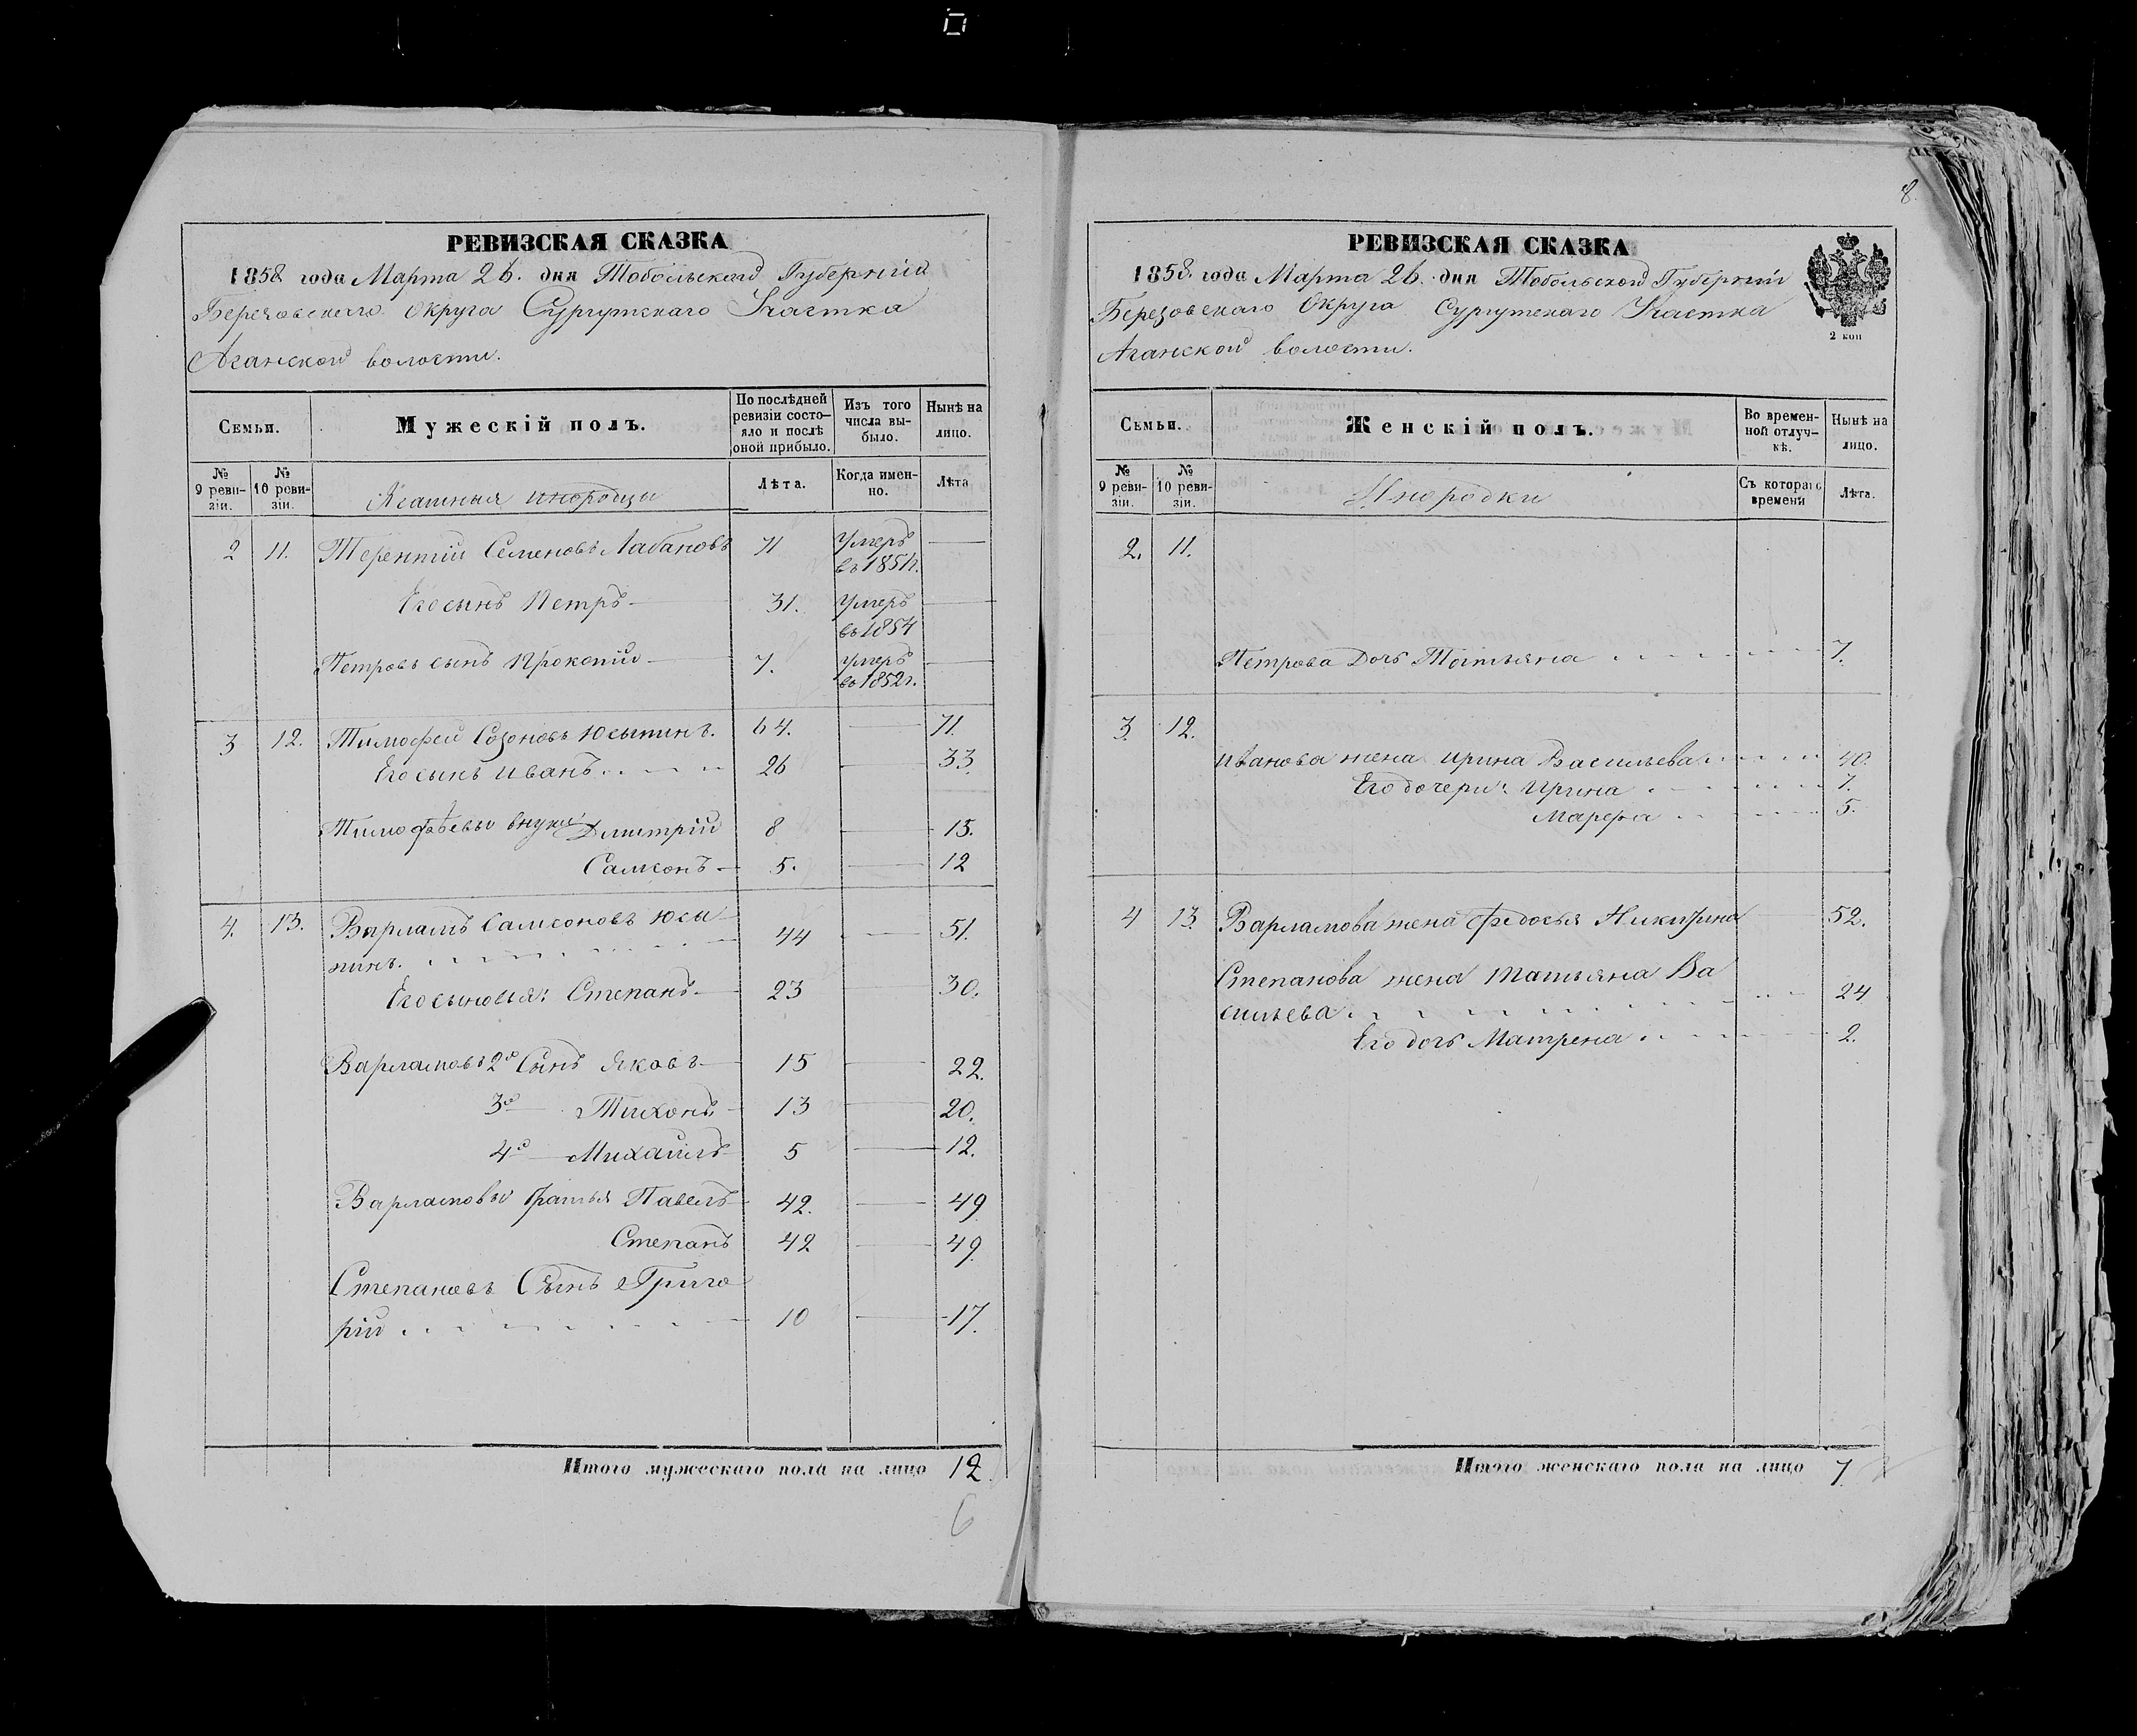 8.
РЕВИЗСКАЯ СКАЗКА
1858 года Марта 26. дня Тобольской Губерніи
Березовскаго Округа Сургутскаго Участка
Аганской волости.
Семьи.
Мужескій полъ.
По послѣдней ревизіи состо-
яло и послѣ
оной прибыло.
Изъ того
числа вы-
было.
Нынѣ на
лицо.
№
9 реви-
зіи.
№
10 реви-
зіи.
Ясашныя инородцы
Лѣта.
Когда имен-
но.
Лѣта
2 11. Терентій Семеновъ Лабановъ 71 Умеръ
въ 1851г.
Его сынъ Петръ 31. Умеръ
въ 1854
Петровъ сынъ Прокопій 7. умеръ
въ 1852г.
3 12. Тимофей Созоновъ Юсыпинъ. 64. 71.
Его сынъ Иванъ 26 33
Тимофѣевы внуки Дмитрій 8 15.
Самсонъ 5. 12
4. 13. Варламъ Самсоновъ Юсы
пинъ. 44 51.
Его сыновья: Степанъ 23 30.
Варламовъ 2й Сынъ Яковъ 15 22.
3й Тихонъ 13 20.
4й Михаилъ 5 12.
Варламовы братья Павелъ 42. 49
Степанъ 42 49.
Степановъ Сынъ Григо
рій 10 17.
Итого мужескаго пола на лицо 12
6
РЕВИЗСКАЯ СКАЗКА
1858 года Марта 26. дня Тобольской Губерніи
Березовскаго Округа Сургутскаго Участка
Аганской волости.
2 коп
Семьи.
Женскій полъ.
Во времен-
ной отлуч-
кѣ.
Нынѣ на
лицо.
№
9 реви-
зіи.
№
10 реви-
зіи.
Инородки
Съ котораго
времени
Лѣта.
2. 11.
Петрова Дочь Татьяна 7.
3. 12.
Иванова жена Ирина Васильева 40.
Его дочери: Ирина 7.
Марфа 5.
4 13. Варламова жена Федосья Никитина 52.
Степанова жена Татьяна Ва
сильева 24
Его дочь Матрена 2.
Итого женскаго пола на лицо 7.